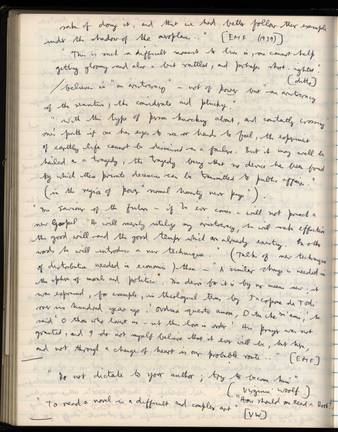 sake of doing it, and that we had better follow their example
under the shadow of the aeroplane." [EMF (1939)]
"This is such a difficult moment to live in, one cannot help
getting gloomy and also a bit rattled, and perhaps short-sighted"
(ditto)
I believe in "an aristocracy" – not of power but an aristocracy
of the sensitive, the considerate and plucky."
"With this type of person knocking about, and constantly crossing
one's path if one has eyes to see or hands to feel, the experiment
of earthly life cannot be dismissed as a failure. But it may well be
hailed as a tragedy, the tragedy being that no device has been found
by which these private decencies can be transmitted to public affairs."
"The Saviour of the future – if he ever comes – will not preach a
new Gospel. He will merely utilise my aristocracy, he will make effective
the good will and the good temper which are already existing. In other
words he will introduce a new technique. (Talk of new technique
of distribution needed in economic) – then – "A similar change is needed in
the sphere of morals and politics. The desire for it is by no means new; it
was expressed, for example, in theological terms by Jacopone da Todi
over six hundred years ago. 'Ordina questo amore, O tu che m'ami,' he
said; 'O thou who lovest me – set this love in order.' His prayer was not
granted, and I do not myself believe that it ever will be, but here,
and not through a change of heart is our probable route." [EMF]
"Do not dictate to your author; try to become him."
(Virginia Woolf)
"To read a novel is a difficult and complex art" "How should one Read a Book"
(VW)